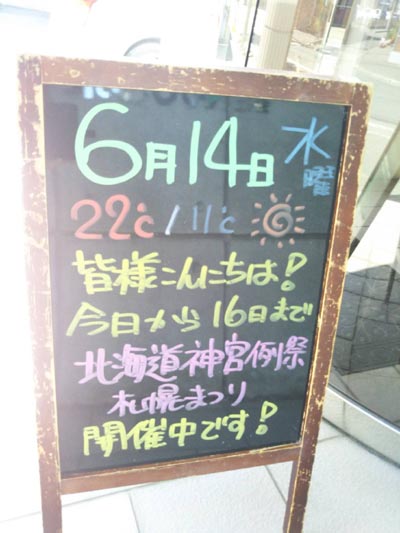 6月14日 水曜
22℃/11℃
皆様こんにちは!
今日から16日まで
北海道神宮例祭
札幌まつり
開催中です!